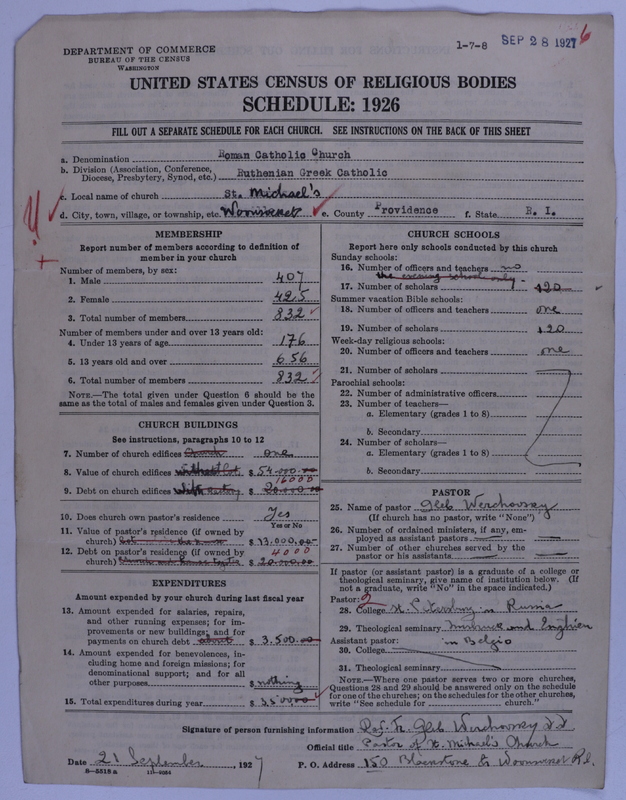 DEPARTMENT OF COMMERCE
BUREAU OF THE CENSUS
WASHINGTON
1-7-8
SEP 28 1927 6
UNITED STATES CENSUS OF RELIGIOUS BODIES
SCHEDULE: 1926
FILL OUT A SEPARATE SCHEDULE FOR EACH CHURCH. SEE INSTRUCTIONS ON THE BACK OF THIS SHEET
a. Denomination Roman Catholic Church
b. Division (Association, Conference, Diocese, Presbytery, Synod, etc.) Ruthenian Greek Catholic
c. Local name of church St. Michael's
d. City, town, village, or township, etc. Woonsocket e. County Providence f. State R. I.
MEMBERSHIP
Report number of members according to definition of
member in your church
Number of members, by sex:
1. Male 407
2. Female 425
3. Total number of members 832
Number of members under and over 13 years old:
4. Under 13 years of age 176
5. 13 years old and over 656
6. Total number of members 832
NOTE.—The total given under Question 6 should be the
same as the total of males and females given under Question 3.
CHURCH BUILDINGS
See instructions, paragraphs 10 to 12
7. Number of church edifices Church one
8. Value of church edifices without lot $ 54.000.00
16000
9. Debt on church edifices $ 20.000.00
10. Does church own pastor's residence Yes
Yes or No
11. Value of pastor's residence (if owned by
church) $ 13.000.00
12. Debt on pastor's residence (if owned by 4000
church) $ 20.000.00
EXPENDITURES
Amount expended by your church during last fiscal year
13. Amount expended for salaries, repairs,
and other running expenses; for im-
provements or new buildings; and for
payments on church debt about $ 3.500.00
14. Amount expended for benevolences, in-
cluding home and foreign missions; for
denominational support; and for all
other purposes $ nothing
15. Total expenditures during year $ 3.500.00
CHURCH SCHOOLS
Report here only schools conducted by this church
Sunday schools:
16. Number of officers and teachers no
the evening school only.
17. Number of scholars 120
Summer vacation Bible schools:
18. Number of officers and teachers one
19. Number of scholars 120
Week-day religious schools:
20. Number of officers and teachers one
21. Number of scholars
Parochial schools:
22. Number of administrative officers
23. Number of teachers—
a. Elementary (grades 1 to 8)
b. Secondary
24. Number of scholars—
a. Elementary (grades 1 to 8)
b. Secondary
PASTOR
25. Name of pastor Gleb Werchovsky
(If church has no pastor, write "None")
26. Number of ordained ministers, if any, em-
ployed as assistant pastors
27. Number of other churches served by the
pastor or his assistants
If pastor (or assistant pastor) is a graduate of a college or
theological seminary, give name of institution below. (If
not a graduate, write "No" in the space indicated.)
Pastor: 2
28. College in Russia
29. Theological seminary and Enghien
Assistant pastor: in Belgio
30. College
31. Theological seminary
NOTE.—Where one pastor serves two or more churches,
Questions 28 and 29 should be answered only on the schedule
for one of the churches; on the schedules for the other churches,
write "See schedule for church."
Signature of person furnishing information Gleb Werchovsky
Official title Pastor of St. Michael's Church
Date 21 September, 1927
P. O. Address 150 Blackstone St Woonsocket R.I.
8—5518 a 11—9054